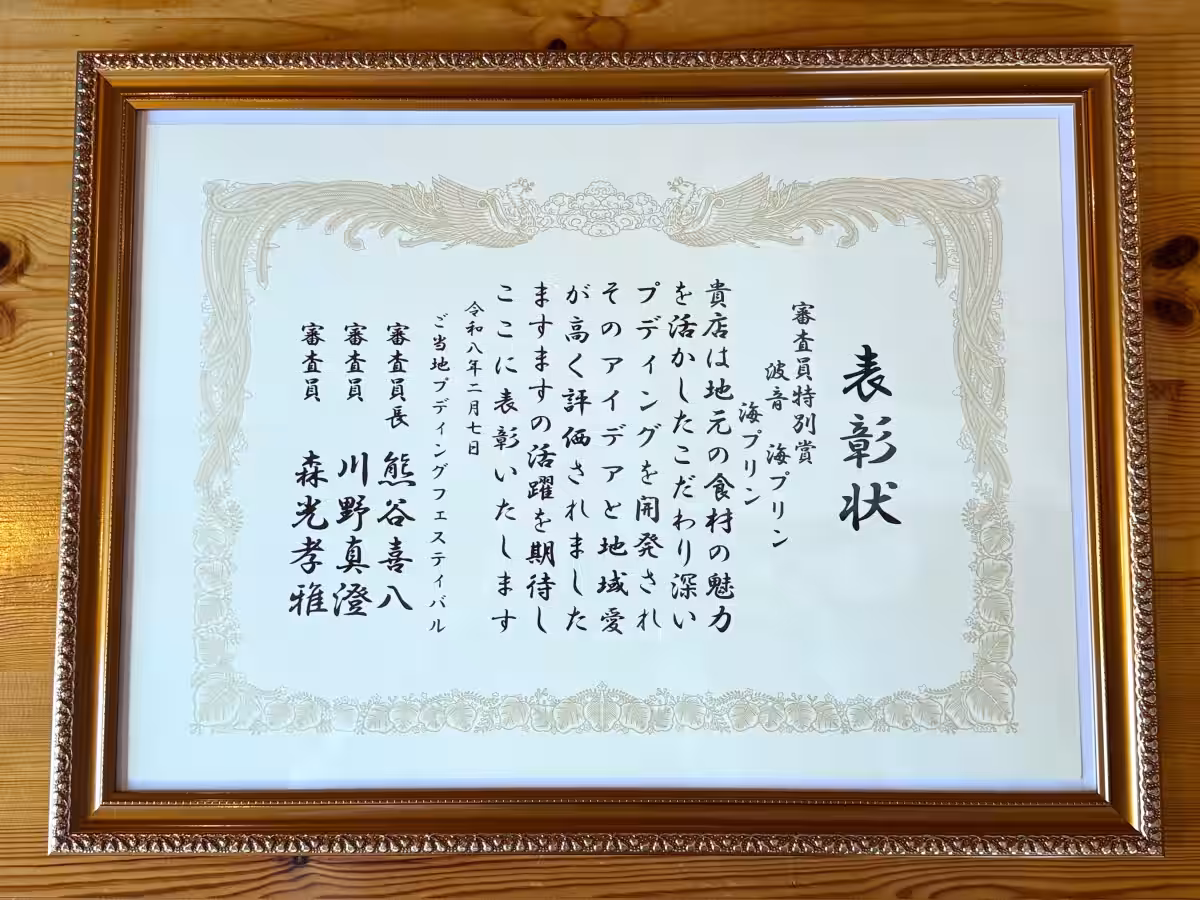 表彰状
審査員特別賞
波音 海プリン
海プリン
貴店は地元の食材の魅力
を活かしたこだわり深い
プディングを開発され
そのアイデアと地域愛
が高く評価されました
ますますの活躍を期待し
ここに表彰いたします
令和八年二月七日
ご当地プディングフェスティバル
審査員長 熊谷喜八
審査員 川野真澄
審査員 森光孝雅